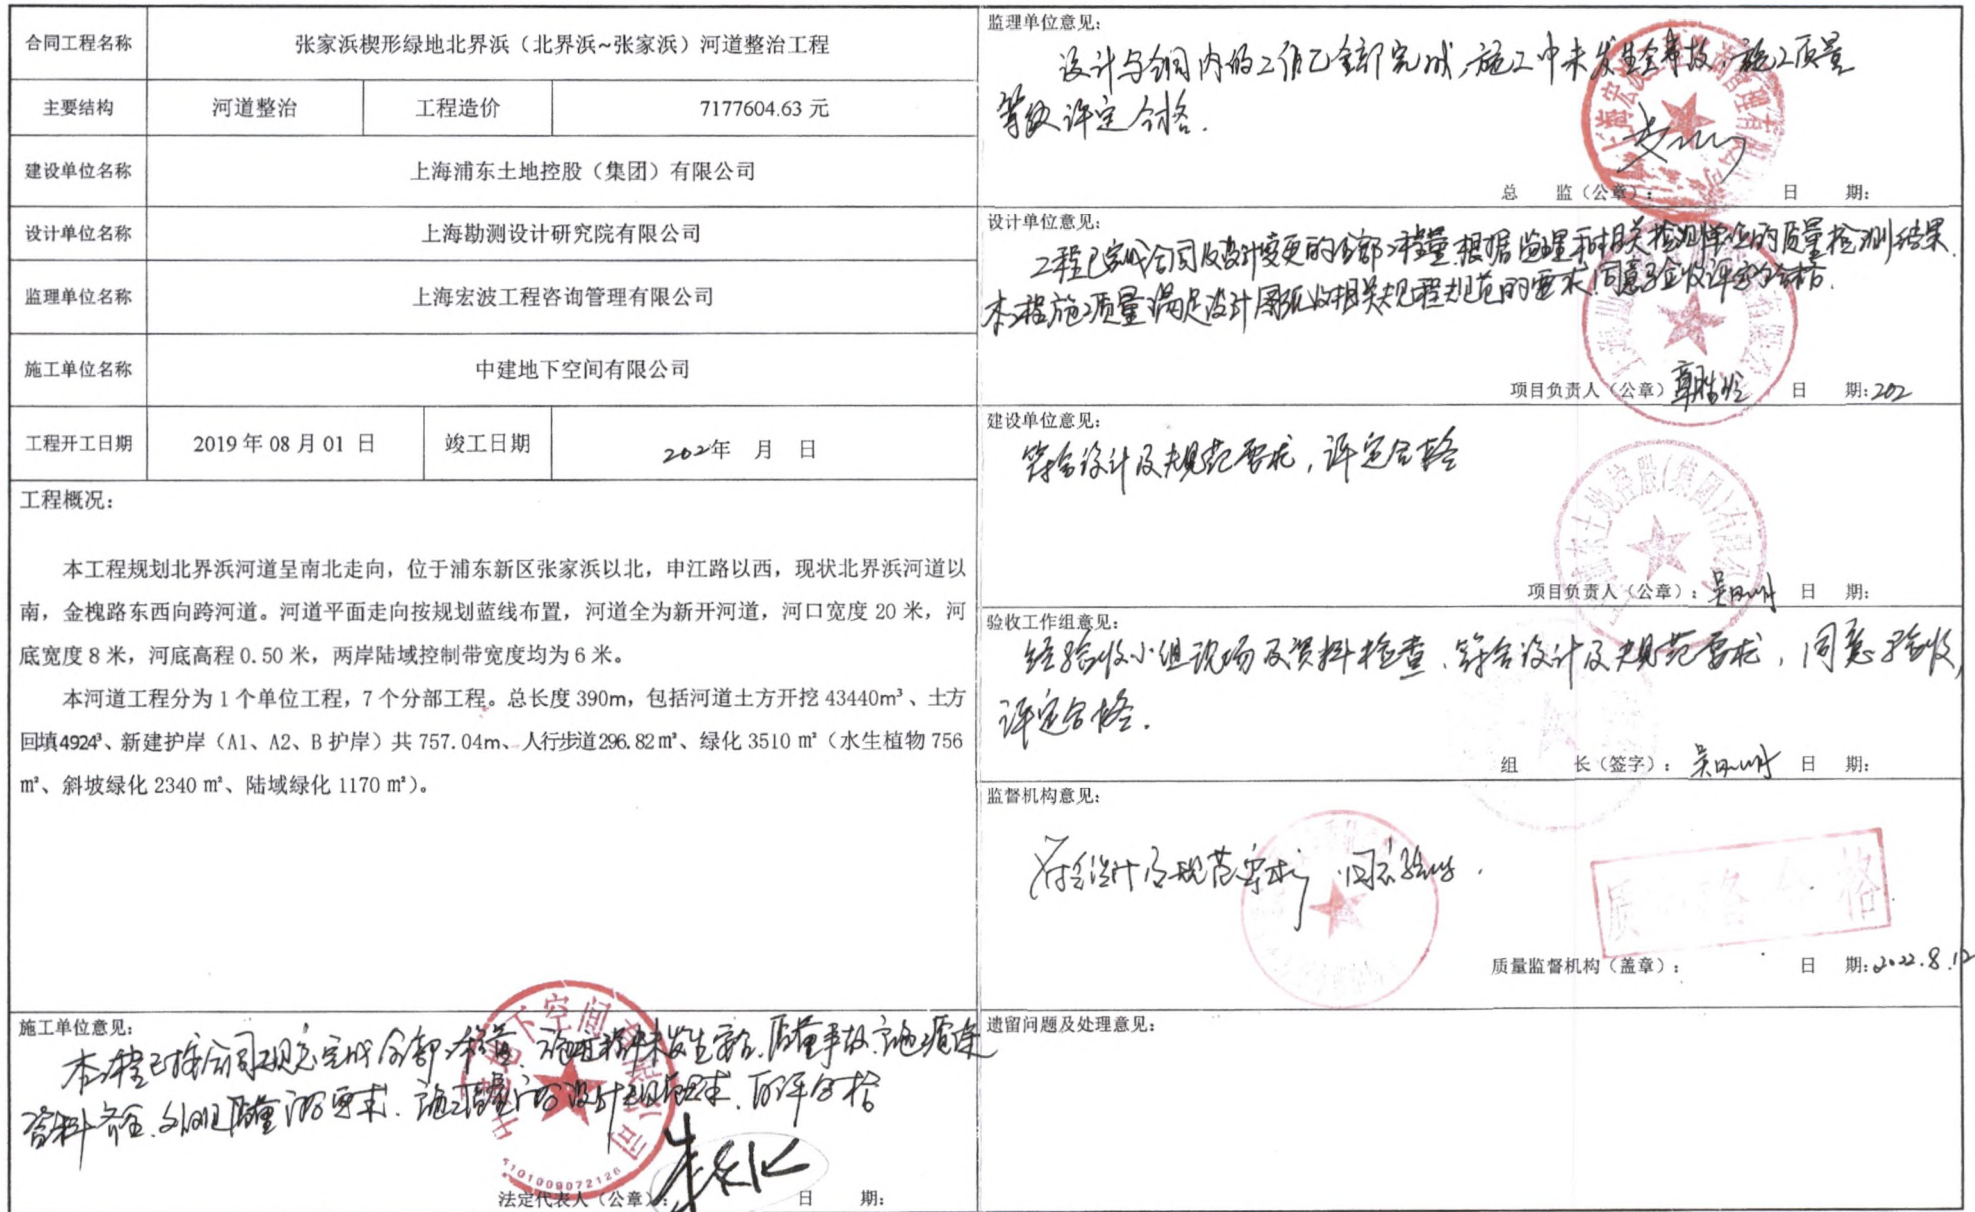 合同工程名称 张家浜楔形绿地北界浜（北界浜~张家浜）河道整治工程
主要结构 河道整治 工程造价 7177604.63 元
建设单位名称 上海浦东土地控股（集团）有限公司
设计单位名称 上海勘测设计研究院有限公司
监理单位名称 上海宏波工程咨询管理有限公司
施工单位名称 中建地下空间有限公司
工程开工日期 2019 年 08 月 01 日 竣工日期 202年 月 日
工程概况：
本工程规划北界浜河道呈南北走向，位于浦东新区张家浜以北，申江路以西，现状北界浜河道以
南，金槐路东西向跨河道。河道平面走向按规划蓝线布置，河道全为新开河道，河口宽度 20 米，河
底宽度 8 米，河底高程 0.50 米，两岸陆域控制带宽度均为 6 米。
本河道工程分为 1 个单位工程，7 个分部工程。总长度 390m，包括河道土方开挖 43440m³、土方
回填4924³、新建护岸（A1、A2、B 护岸）共 757.04m、人行步道296.82㎡、绿化 3510 ㎡（水生植物 756
㎡、斜坡绿化 2340 ㎡、陆域绿化 1170 ㎡）。
施工单位意见：
本工程已按合同规定完成全部
资料齐全
中建地下空间有限公司
1101009072126
法定代表人（公章）： 日 期：
监理单位意见：
设计与合同内的工作已全部完成，施工中未发生安全事故，施工质量
等级评定合格.
总 监（公章）： 日 期：
设计单位意见：
工程已完成合同及设计变更的全部工程量，根据监理和相关检测单位的质量检测结果.
本工程施工质量满足设计图纸及相关规程规范的要求，同意验收评定为合格.
项目负责人（公章） 日 期：202
建设单位意见：
符合设计及规范要求，评定合格
项目负责人（公章）： 日 期：
验收工作组意见：
经验收小组现场及资料检查，符合设计及规范要求，同意验收，
评定合格.
组 长（签字）： 日 期：
监督机构意见：
符合设计及规范要求，同意验收.
质量监督机构（盖章）： 日 期：2022.8.12
遗留问题及处理意见：